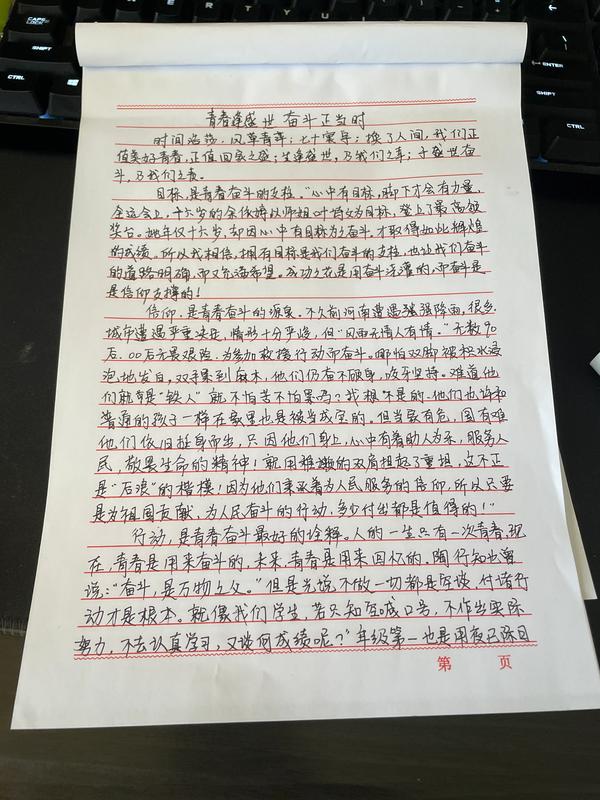 CAPS LOCK
SHIFT
CTRL
SHIFT
CTRL
青春逢盛世 奋斗正当时
时间浩荡,风华青葱;七十寰导;换了人间,我们正
值美好青春,正值回家之盛;生逢盛世,乃我们之幸;于盛世奋
斗,乃我们之责。
目标,是青春奋斗的支柱。“心中有目标,脚下才会有力量,
全运会上,十六岁的余依婷以师姐叶诗文为目标,登上了最高领
奖台。她年仅十六岁,却因心中有目标为之奋斗,才取得如此辉煌
的成绩。所以我相信,拥有目标是我们奋斗的支柱,也让我们奋斗
的道路明确而又充满希望。成功之花是用奋斗浇灌的,而奋斗是
是信仰支撑的!
信仰,是青春奋斗的源泉。不久前河南遭遇强强降雨,很多
城市遭遇严重决堤,情形十分严峻,但“风雨无情人有情。”无数90
后、00后无畏艰险,为参加救援行动而奋斗。哪怕双脚被积水浸
泡地发白,双手累到麻木,他们仍奋不顾身,咬牙坚持。难道他
们就都是“铁人”就不怕苦不怕累吗?我想不是的,他们也许和
普通的孩子一样在家里也是被当成宝的。但当家有危,国有难
他们依旧挺身而出,只因他们身上,心中有着助人为乐,服务人
民,敬畏生命的精神!就用稚嫩的双肩担起了重担,这不正
是“后浪”的楷模!因为他们秉承着为人民服务的信仰,所以只要
是为祖国贡献,为人民奋斗的行动,多少付出都是值得的!”
行动,是青春奋斗最好的诠释。人的一生只有一次青春,现
在,青春是用来奋斗的,未来,青春是用来回忆的。陶行知也曾
说:“奋斗,是万物之父。”但是光说不做一切都是空谈,付诸行
动才是根本。就像我们学生,若只知空喊口号,不作出实际
努力,不去认真学习,又谈何成绩呢?”年级第一也是用夜以际日
第 页